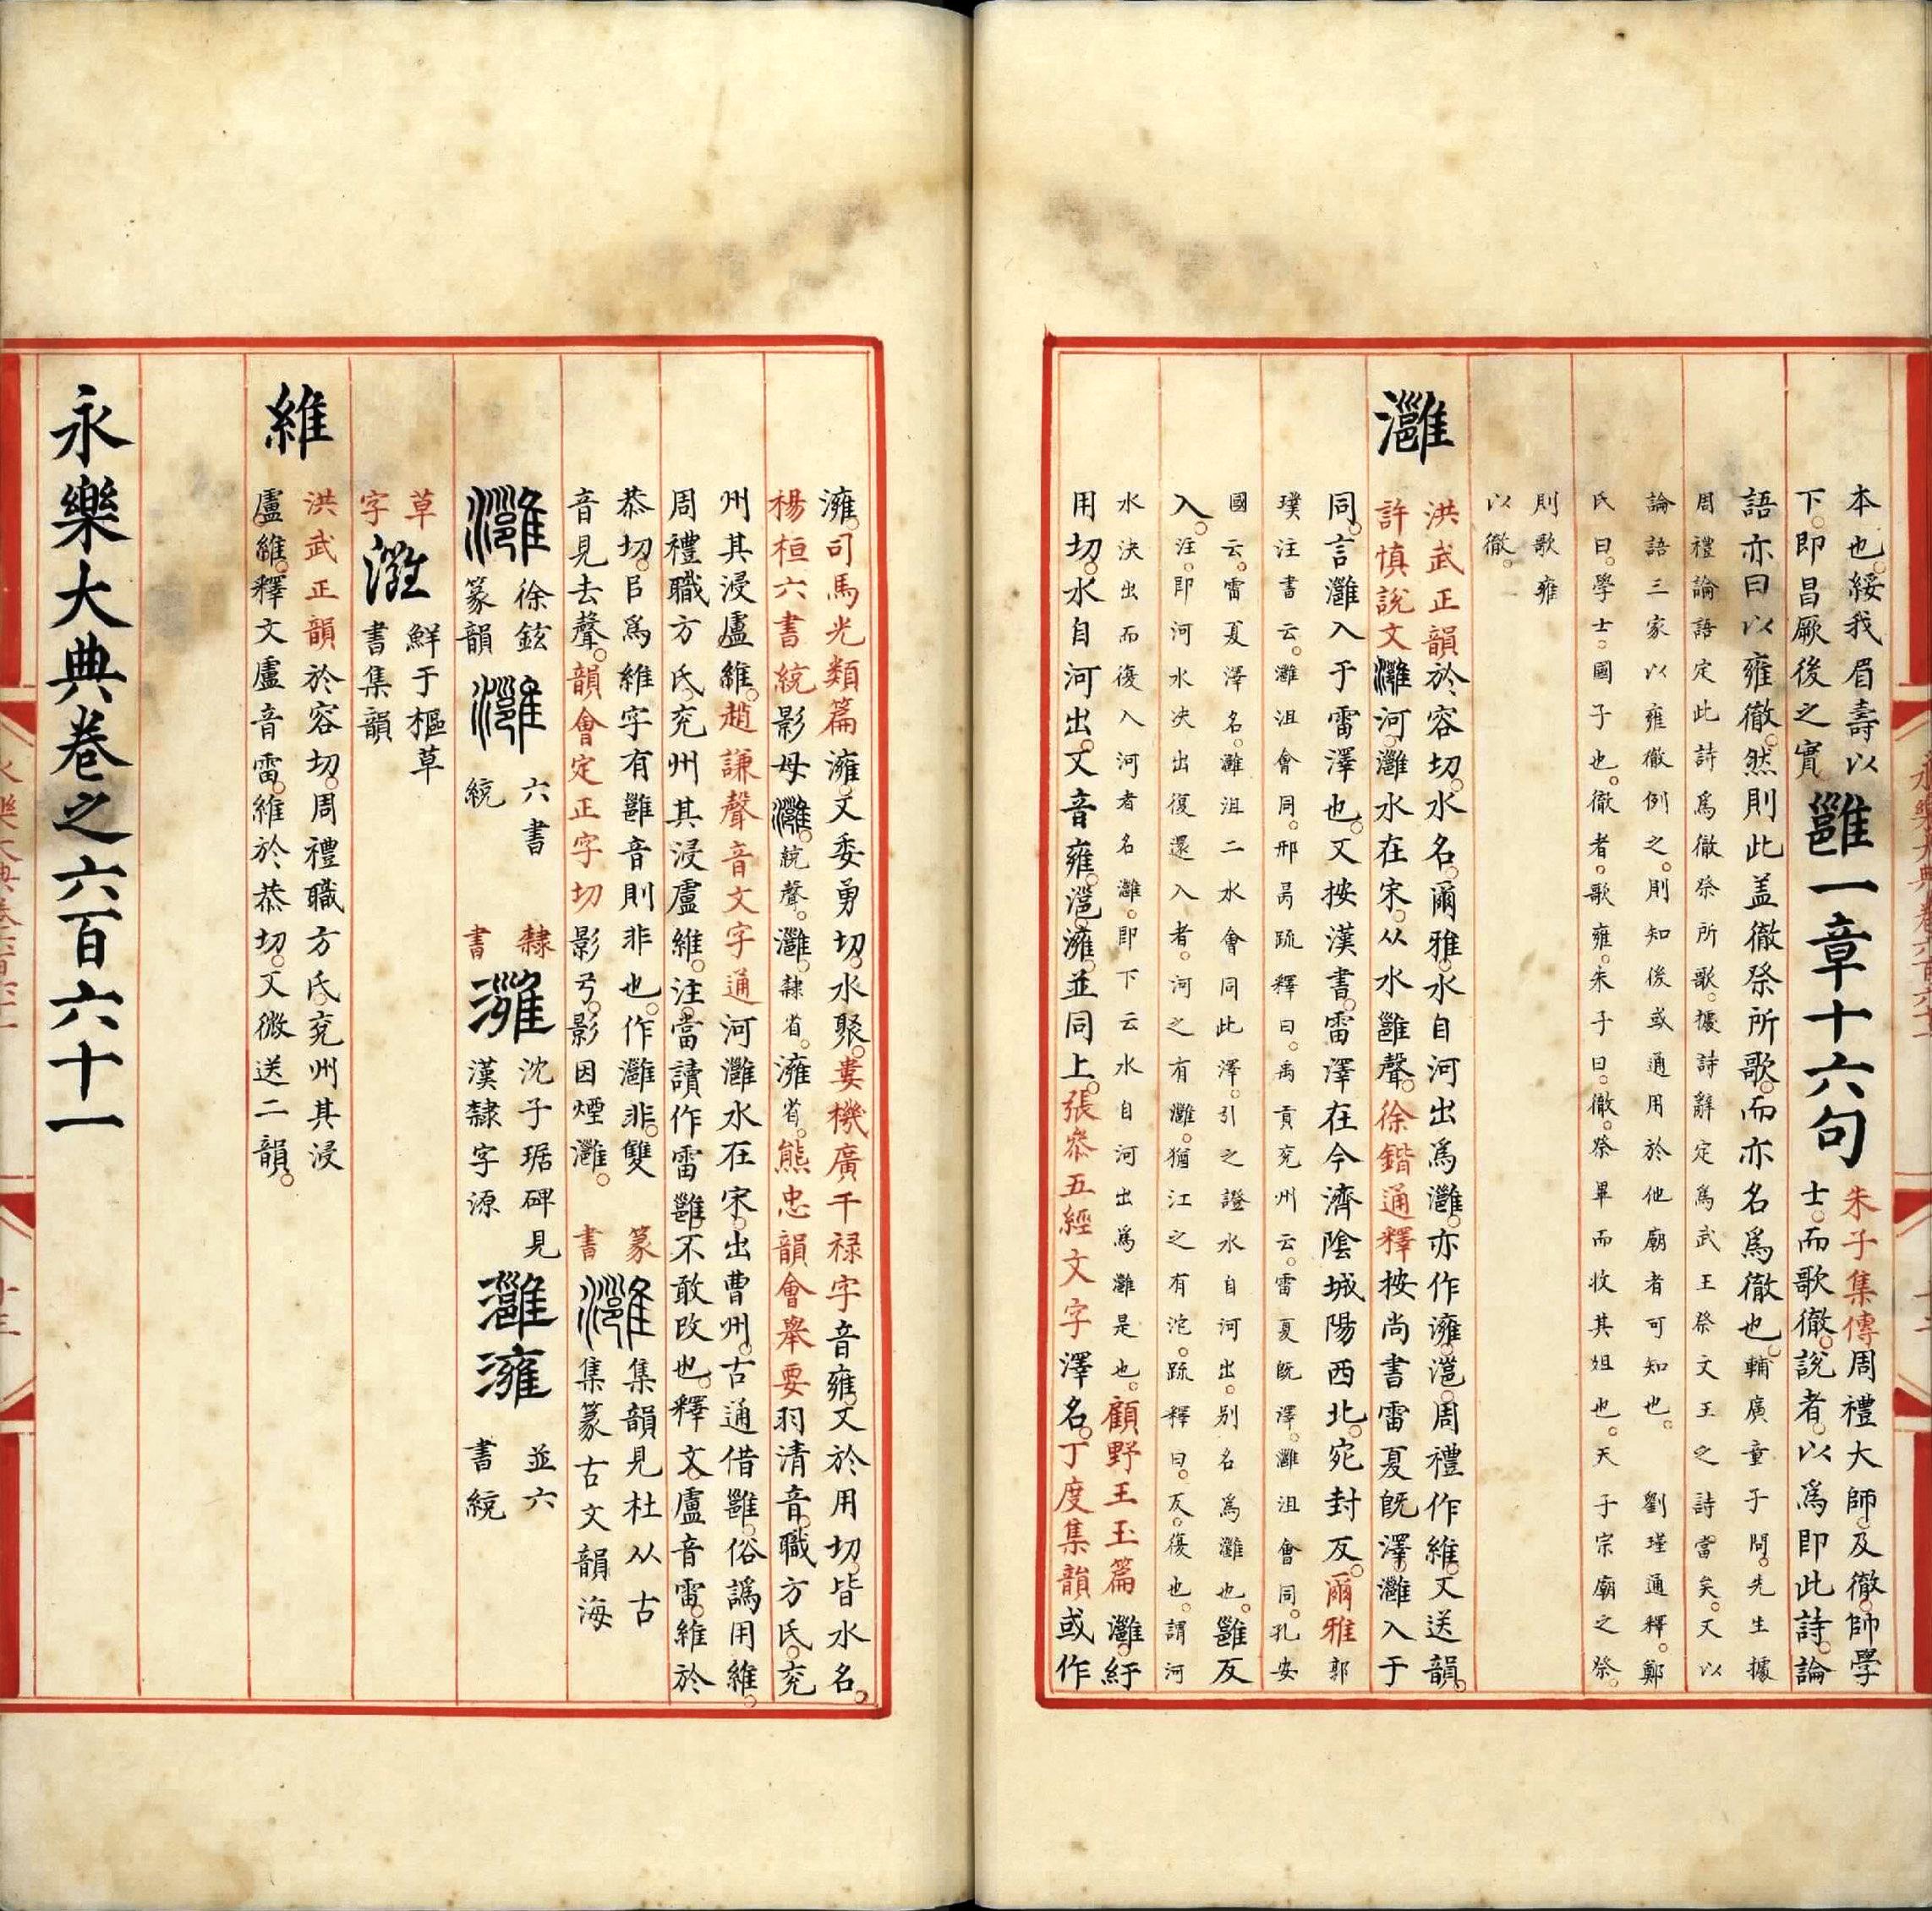 本也綏我眉壽以
下即昌厥後之實
雝一章十六句
朱子集傳周禮大師及徹帥學
士而歌徹說者以爲即此詩論
語亦曰以雍徹然則此盖徹祭所歌而亦名爲徹也輔廣童子問先生據
周禮論語定此詩爲徹祭所歌據詩辭定爲武王祭文王之詩當矣又以
論語三家以雍徹例之則知後或通用於他廟者可知也 劉瑾通釋鄭
氏曰學士國子也徹者歌雍朱子曰徹祭畢而收其俎也天子宗廟之祭
則歌雍
以徹
灉
洪武正韻於容切水名爾雅水自河出爲灉亦作澭灉周禮作維又送韻
許慎說文灉河灉水在宋从水雝聲徐鍇通釋按尚書雷夏旣澤灉入于
同言灉入于雷澤也又按漢書雷澤在今濟陰城陽西北宛封反爾雅郭
璞注書云灉沮會同邢昺疏釋曰禹貢兖州云雷夏旣澤灉沮會同孔安
國云雷夏澤名灉沮二水會同此澤引之證水自河出别名爲灉也雝反
入注即河水决出復還入者河之有灉猶江之有沱疏釋曰反復也謂河
水决出而復入河者名灉即下云水自河出爲灉是也顧野王玉篇灉紆
用切水自河出又音雍澭並同上張參五經文字澤名丁度集韻或作
澭司馬光類篇澭又委勇切水聚婁機廣干禄字音雍又於用切皆水名
楊桓六書統影母灉統聲灉隸省澭省熊忠韻會舉要羽清音職方氏兖
州其浸盧維趙謙聲音文字通河灉水在宋出曹州古通借雝俗譌用維
周禮職方氏兖州其浸盧維注當讀作雷雝不敢改也釋文盧音雷維於
恭切㠯爲維字有雝音則非也作灉非雙
音見去聲韻會定正字切影弓影因煙灉
篆
書
灉
集韻見杜从古
集篆古文韻海
灉
徐鉉
篆韻
灉
六書
統
隸
書
灉
沈子琚碑見
漢隸字源
灉澭
並六
書統
草
字
灉
鮮于樞草
書集韻
維
洪武正韻於容切周禮職方氏兖州其浸
盧維釋文盧音雷維於恭切又微送二韻
永樂大典卷之六百六十一